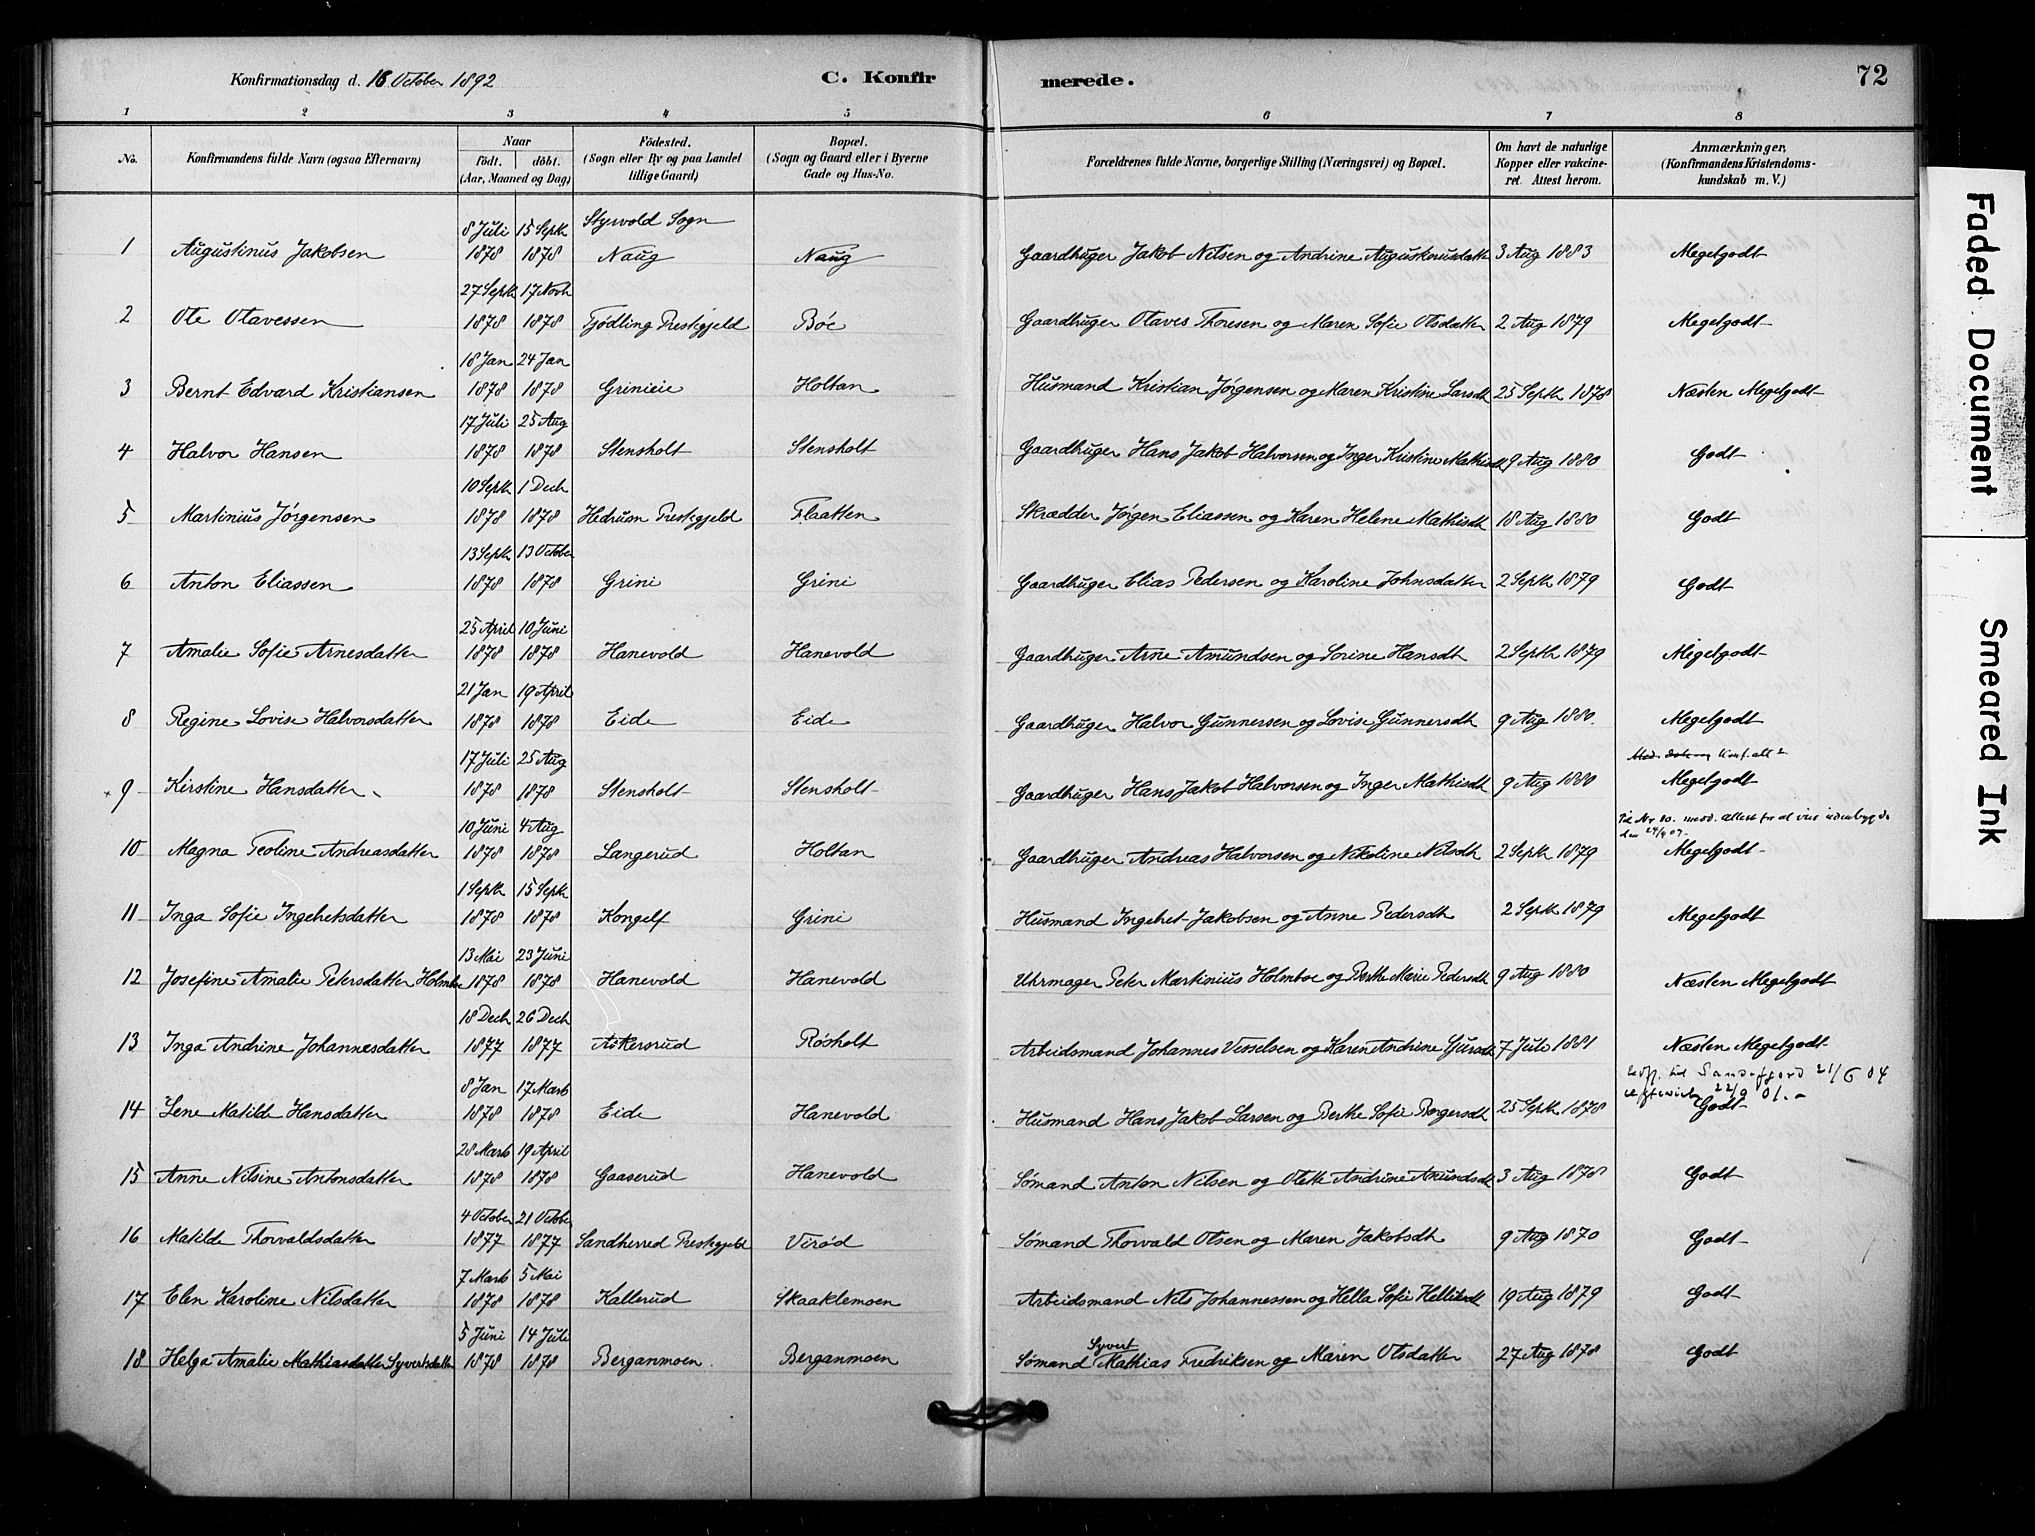 Konfirmationsdag d. 16 October 1892 C. Konfirmerede. 72
1 2 3 4 5 6 7 8
No. Konfirmandens fulde Navn (ogsaa Efternavn) Naar födt. döbt. (Aar, Maaned og Dag) Födested. (Sogn eller By og paa Landet tillige Gaard) Bopæl. (Sogn og Gaard eller i Byerne Gade og Hus-No. Forældrenes fulde Navne, borgerlige Stilling (Næringsvei) og Bopæl. Om havt de naturlige Kopper eller vakcineret. Attest herom. Anmærkninger, (Konfirmandens Kristendomskundskab m. V.)
8 Juli 15 Septb Styrvold Sogn
1 Augustinus Jakobsen 1878 1878 Naug Naug Gaardbruger Jakob Nilsen og Andrine Augustinusdatter 3 Aug 1883 Megetgodt
27 Septb 17 Novb
2 Ole Olavessen 1878 1878 Tjødling Prestegjeld Bøe Gaardbruger Olaves Thoresen og Maren Sofie Olsdatter 2 Aug 1879 Megetgodt
18 Jan 24 Jan
3 Bernt Edvard Kristiansen 1878 1878 Grinieie Holtan Husmand Kristian Jørgensen og Maren Kristine Larsdt 25 Septb 1878 Næsten Megetgodt
17 Juli 25 Aug
4 Halvor Hansen 1878 1878 Stensholt Stensholt Gaardbruger Hans Jakob Halvorsen og Inger Kristine Mathisdt 9 Aug 1880 Godt
10 Septb 1 Decb
5 Martinius Jørgensen 1878 1878 Hedrum Prestegjeld Flaatten Skrædder Jørgen Eliassen og Karen Helene Mathisdt 18 Aug 1880 Godt
13 Septb 13 October
6 Anton Eliassen 1878 1878 Grini Grini Gaardbruger Elias Pedersen og Karoline Johnsdatter 2 Septb 1879 Godt
25 April 10 Juni
7 Amalie Sofie Arnesdatter 1878 1878 Hanevold Hanevold Gaardbruger Arne Amundsen og Sorine Hansdt 2 Septb 1879 Megetgodt
21 Jan 19 April
8 Regine Lovise Halvorsdatter 1878 1878 Eide Eide Gaardbruger Halvor Gunnersen og Lovise Gunnersdt 9 Aug 1880. Megetgodt
17 Juli 25 Aug
9 Kirstine Hansdatter 1878 1878 Stensholt Stensholt Gaardbruger Hans Jakob Halvorsen og Inger Mathisdt 9 Aug 1880 Megetgodt
10 Juni 4 Aug
10 Magna Teoline Andreasdatter 1878 1878 Langerud Holtan Gaardbruger Andreas Halvorsen og Nikoline Nilsdt 2 Septb 1879 Megetgodt
1 Septb 15 Septb
11 Inga Sofie Ingebretsdatter 1878 1878 Kongelf Grini Husmand Ingebret Jakobsen og Anne Pedersdt 2 Septb 1879 Megetgodt
13 Mai 23 Juni
12 Josefine Amalie Petersdatter Holmboe 1878 1878 Hanevold Hanevold Uhrmager Peter Martinius Holmboe og Berthe Marie Pedersdt 9 Aug 1880 Næsten Megetgodt
18 Decb 26 Decb
13 Inga Andrine Johannesdatter 1877 1877 Askersrud Røsholt Arbeidsmand Johannes Vesselsen og Karen Andrine Sjursdt 7 Juli 1881 Næsten Megetgodt
Sandefjord 21/6 04
8 Jan 17 Marts 22/9 01.
14 Lene Matilde Hansdatter 1878 1878 Eide Hanevold Husmand Hans Jakob Larsen og Berthe Sofie Borgersdt 25 Septb 1878 Godt
28 Marts 19 April
15 Anne Nilsine Antonsdatter 1878 1878 Gaaserud Hanevold Sømand Anton Nilsen og Olette Andrine Amundsdt 3 Aug 1878 Godt
4 October 21 October
16 Matilde Thorvaldsdatter 1877 1877 Sandherred Prestegjeld Virød Sømand Thorvald Olsen og Maren Jakobsdt 9 Aug 1870 Godt
7 Marts 5 Mai
17 Elen Karoline Nilsdatter 1878 1878 Kallerud Skaaklemoen Arbeidsmand Nils Johannessen og Hella Sofie Helliesdt 19 Aug 1879 Godt
5 Juni 14 Juli Syvert
18 Helga Amalie Mathiasdatter Syvertsdatter 1878 1878 Berganmoen Berganmoen Sømand Mathias Fredriksen og Maren Olsdatter 27 Aug 1878 Godt
Faded Document
Smeared Ink